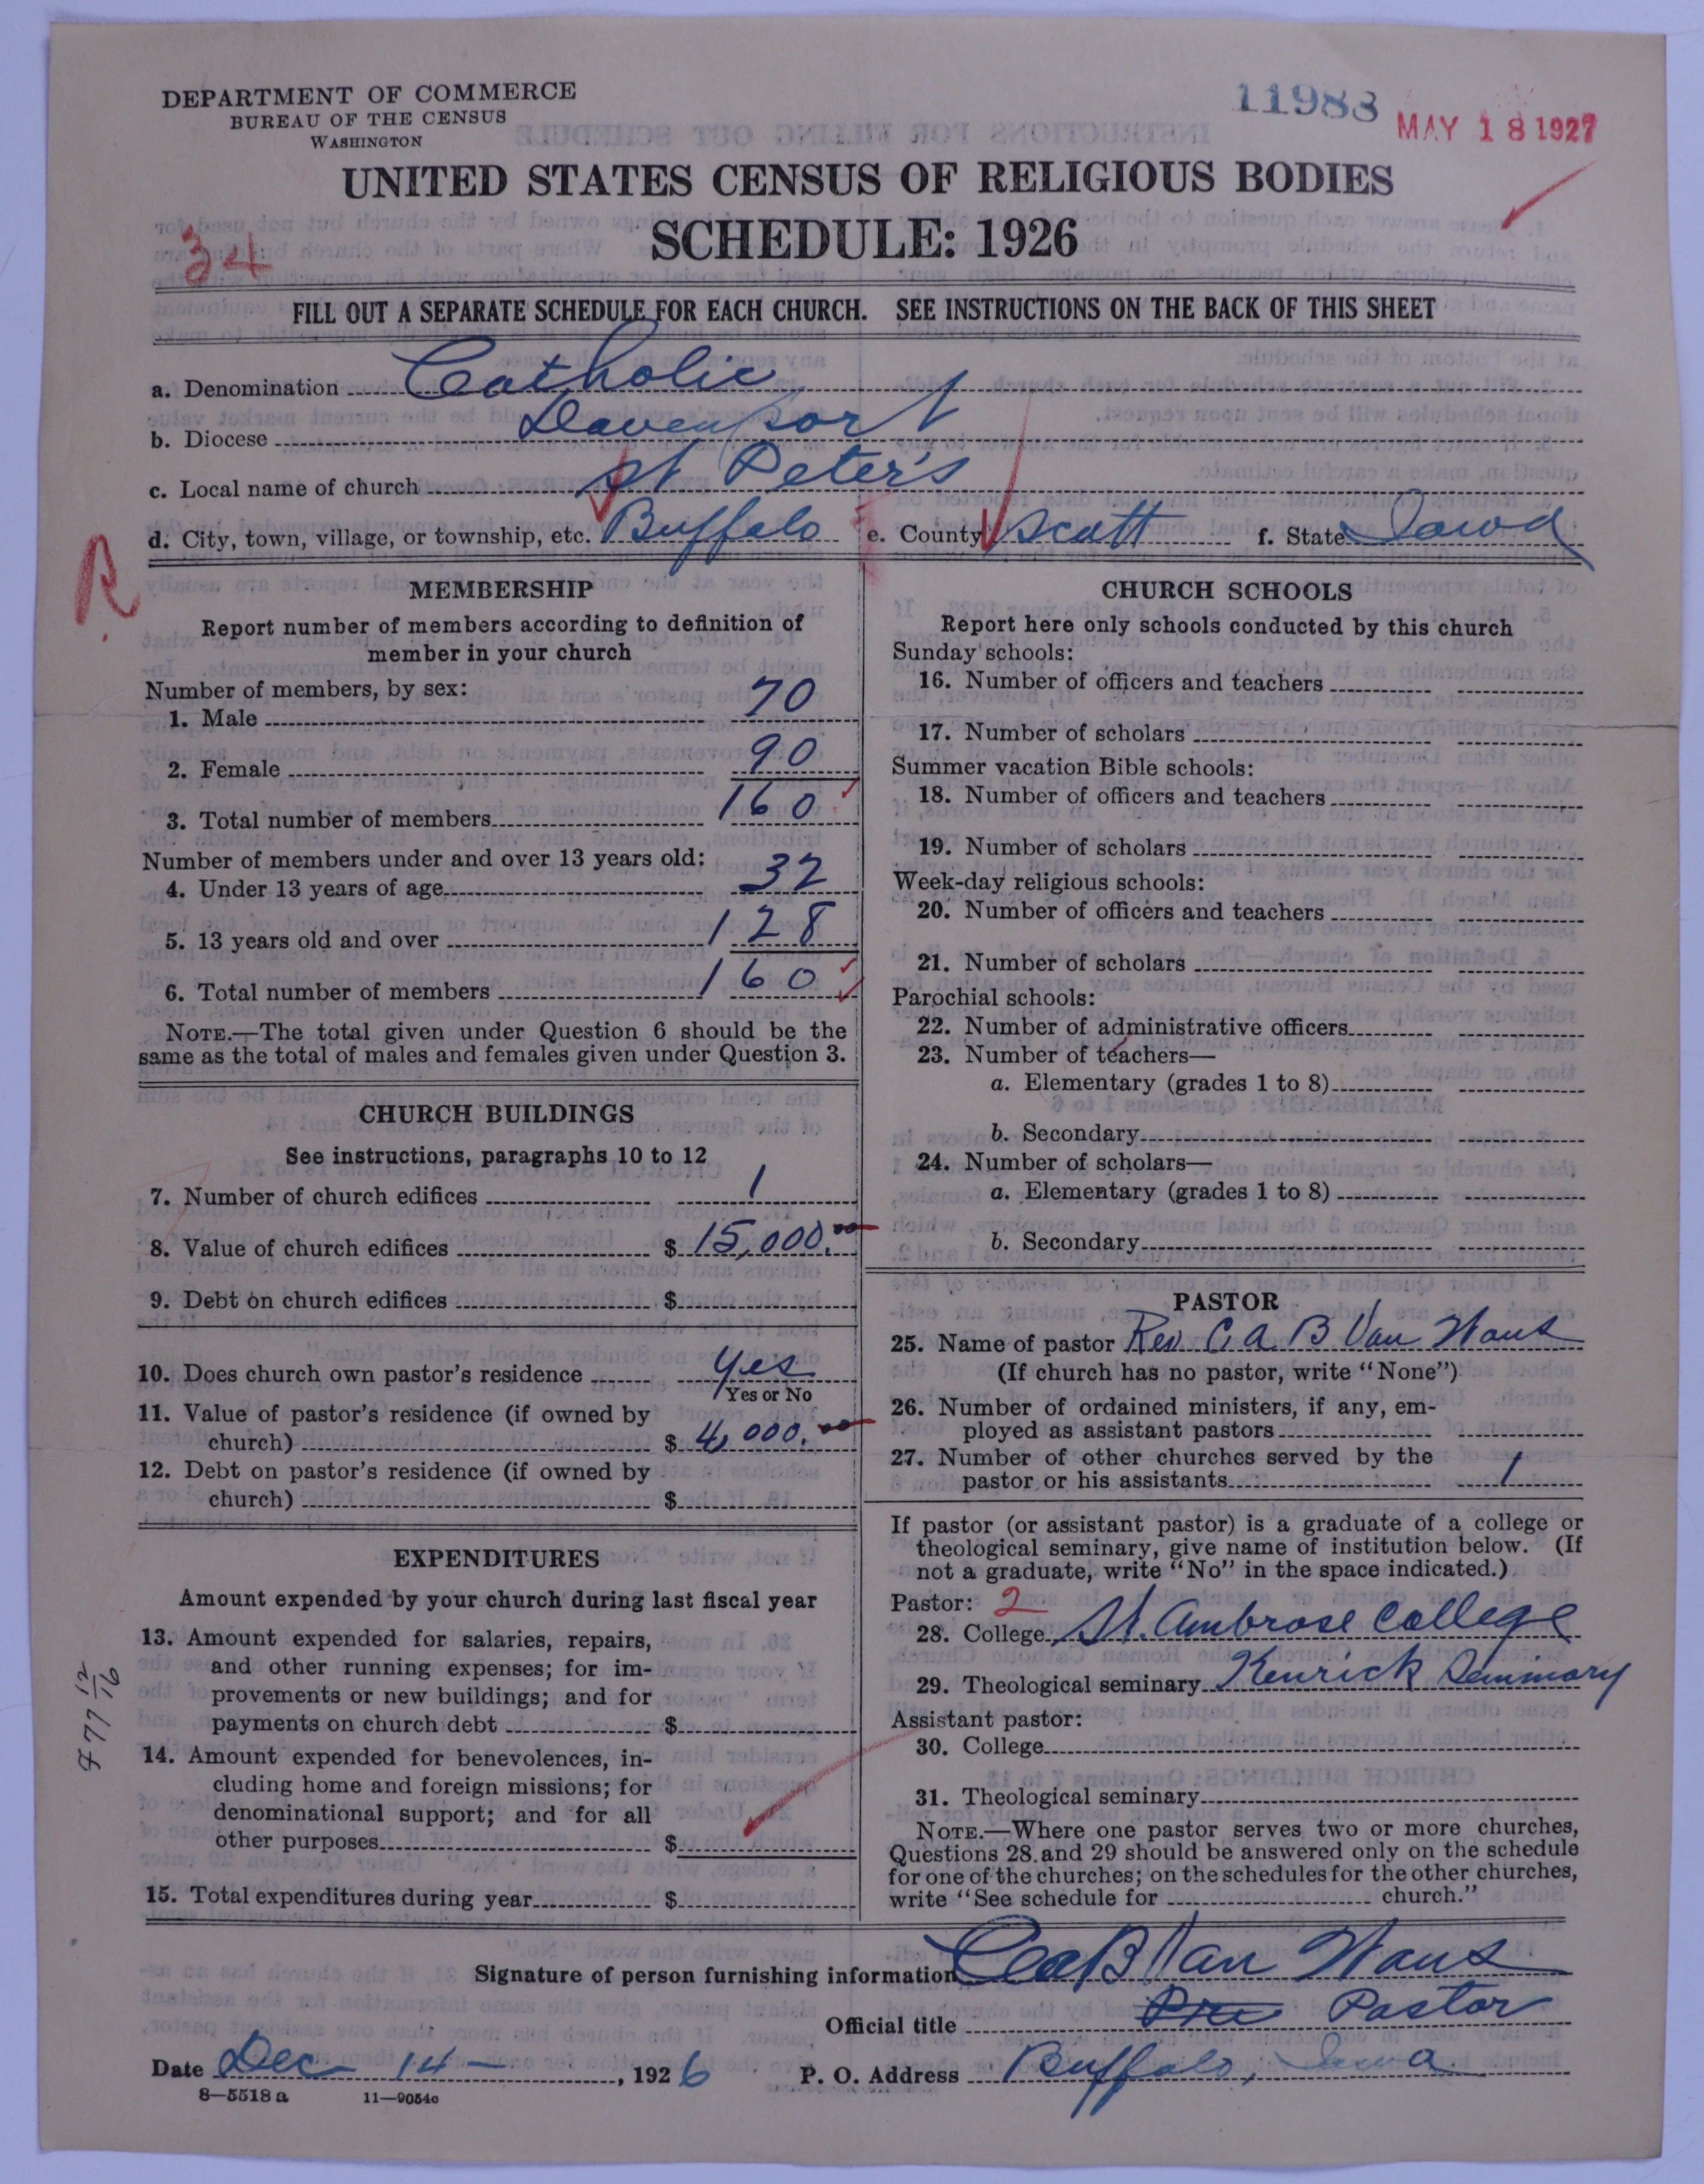 DEPARTMENT OF COMMERCE
BUREAU OF THE CENSUS
WASHINGTON
11988
MAY 18 1927
UNITED STATES CENSUS OF RELIGIOUS BODIES
SCHEDULE: 1926
34
FILL OUT A SEPARATE SCHEDULE FOR EACH CHURCH. SEE INSTRUCTIONS ON THE BACK OF THIS SHEET
a. Denomination Catholic
b. Diocese Davenport
c. Local name of church St Peter's
d. City, town, village, or township, etc. Buffalo e. County Scott f. State Iowa
R
MEMBERSHIP
Report number of members according to definition of
member in your church
Number of members, by sex:
1. Male 70
2. Female 90
3. Total number of members 160
Number of members under and over 13 years old:
4. Under 13 years of age 32
5. 13 years old and over 128
6. Total number of members 160
NOTE.—The total given under Question 6 should be the
same as the total of males and females given under Question 3.
CHURCH BUILDINGS
See instructions, paragraphs 10 to 12
7. Number of church edifices 1
8. Value of church edifices $ 15,000.00
9. Debt on church edifices $
10. Does church own pastor's residence Yes
Yes or No
11. Value of pastor's residence (if owned by
church) $ 4,000.00
12. Debt on pastor's residence (if owned by
church) $
EXPENDITURES
Amount expended by your church during last fiscal year
13. Amount expended for salaries, repairs,
and other running expenses; for im-
provements or new buildings; and for
payments on church debt $
14. Amount expended for benevolences, in-
cluding home and foreign missions; for
denominational support; and for all
other purposes $
15. Total expenditures during year $
CHURCH SCHOOLS
Report here only schools conducted by this church
Sunday schools:
16. Number of officers and teachers
17. Number of scholars
Summer vacation Bible schools:
18. Number of officers and teachers
19. Number of scholars
Week-day religious schools:
20. Number of officers and teachers
21. Number of scholars
Parochial schools:
22. Number of administrative officers
23. Number of teachers—
a. Elementary (grades 1 to 8)
b. Secondary
24. Number of scholars—
a. Elementary (grades 1 to 8)
b. Secondary
PASTOR
25. Name of pastor Rev C. A. B Van
(If church has no pastor, write "None")
26. Number of ordained ministers, if any, em-
ployed as assistant pastors
27. Number of other churches served by the
pastor or his assistants 1
If pastor (or assistant pastor) is a graduate of a college or
theological seminary, give name of institution below. (If
not a graduate, write "No" in the space indicated.)
Pastor: 2
28. College St. Ambrose College
29. Theological seminary Kenrick Seminary
Assistant pastor:
30. College
31. Theological seminary
NOTE.—Where one pastor serves two or more churches,
Questions 28 and 29 should be answered only on the schedule
for one of the churches; on the schedules for the other churches,
write "See schedule for church."
Signature of person furnishing information B Van
Official title Pastor
Date Dec 14 , 1926 P. O. Address Buffalo, Iowa
8—5518 a 11—9054c